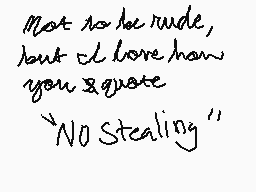 Not to be rude,
but I love how
you & quote
"NO Stealing"